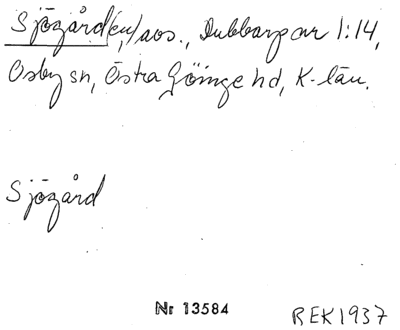 Sjögård(en)/aos., Dubbarp ar 1:14,
Osby sn, Östra Göinge hd, K-län.
Sjögård
Nr 13584
REK1937